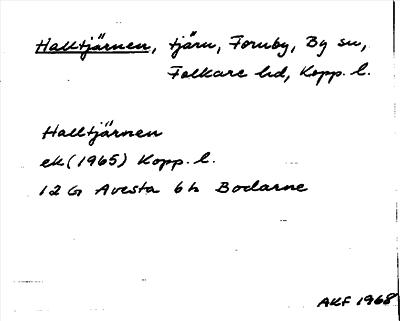 Halltjärnen, tjärn, Fornby, By sn,
Folkare hd, Kopp. l.
Halltjärnen
ek (1965) Kopp. l.
12 G Avesta 6 h Bodarne
AKF 1968